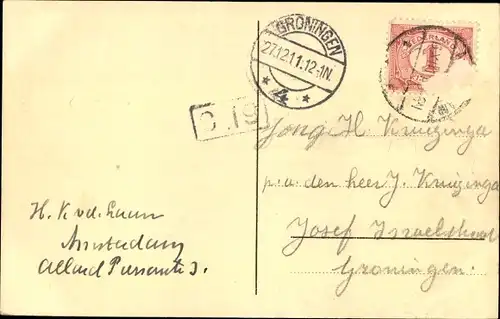 GRONINGEN
27.12.11.12-1N.
4
NEDERLAND
1
Jong H Kruizinga
p.a. den heer J. Kruizinga
Josef Israelstraat
Groningen.
H. K. v.d. Laan
Amsterdam
Allard Piersonstr 3.